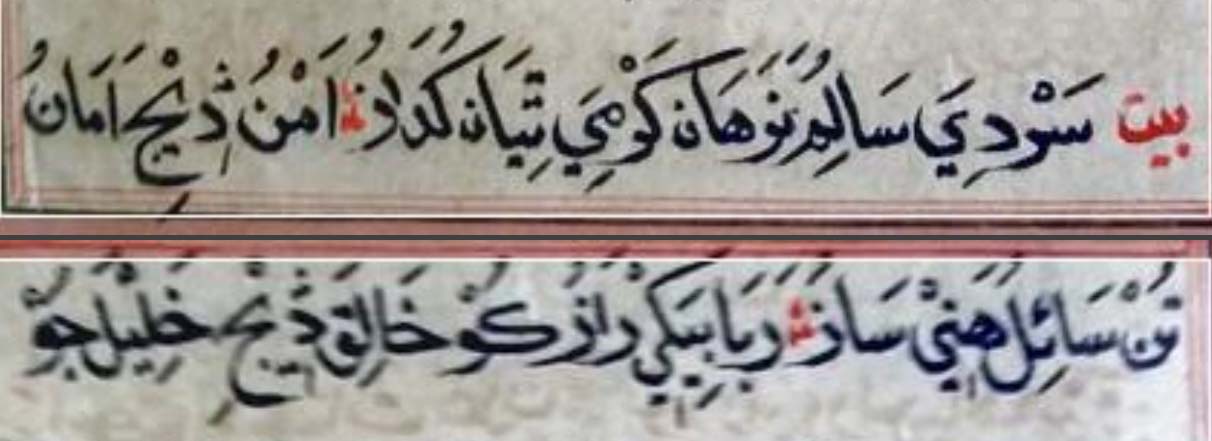 بيت سَوْدِيَ سَالِمُ نَوَهَان كَوْمَيِ تِيَان كُدَازُ امْنُ ذِيْجِ امَانُ
تُنْ سَائِلَ هَنِيْ سَازَ رَبَابِيَكِيْ رَازُ كُوْ خَالِقَ ذِيْجِ خَلِيْلَ جوْ